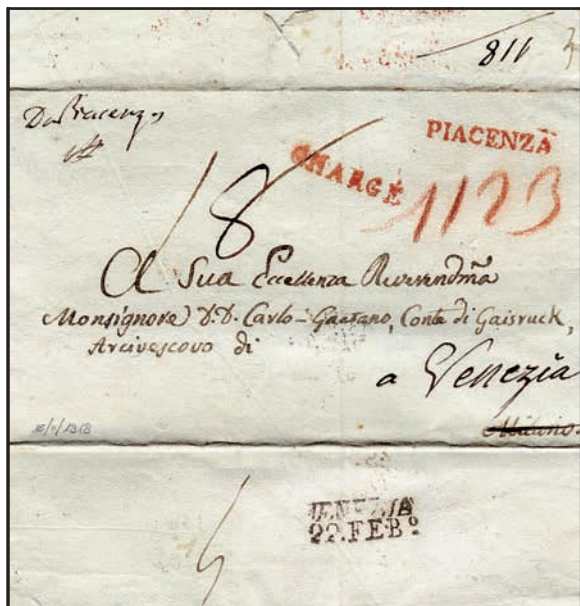 811 3
Da Piacenza
PIACENZA
CHARGÉ
1123
18
A Sua Eccellenza Reverendma
Monsignore D.D. Carlo-Gaetano, Conte di Gaisruck,
Arcivescovo di
a Venezia
Milano.
VENEZIA
22.FEBo